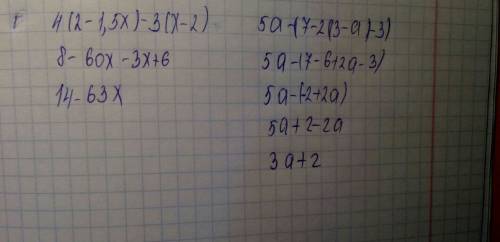 4(2-1,5x)-3(x-2)
8-60x-3x+6
14-63x
5a-(7-2(3-a)-3)
5a-(7-6+2a-3)
5a-(-2+2a)
5a+2-2a
3a+2